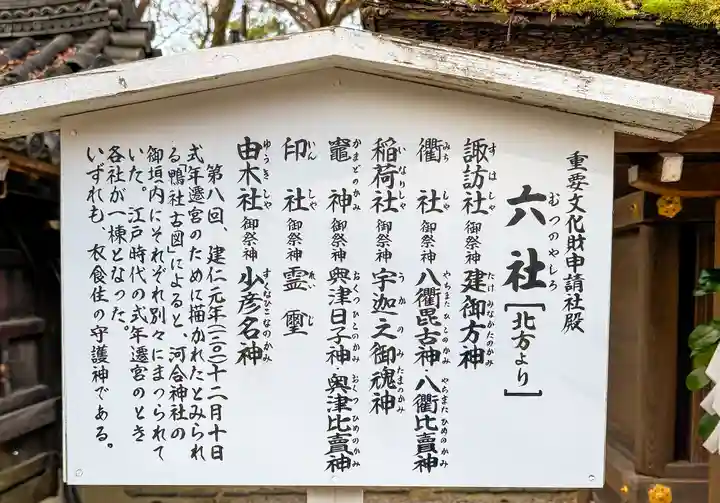 重要文化財申請社殿
六社［北方より］
むつのやしろ
諏訪社 御祭神 建御方神
すはしゃ たけみなかたのかみ
衢社 御祭神 八衢毘古神・八衢比賣神
みちしゃ やちまたひとのかみ やちまたひめのかみ
稲荷社 御祭神 宇迦之御魂神
いなりしゃ うかのみたまつかみ
竈神 御祭神 奥津日子神・奥津比賣神
かまどのかみ おくつひとのかみ おくつひめのかみ
印社 御祭神 霊璽
いんしゃ れいじ
由木社 御祭神 少彦名神
ゆうきしゃ すくなひこなのかみ
第八回、建仁元年(一二〇一)十二月十日
式年遷宮のために描かれたとみられ
る「鴨社古図」によると、河合神社の
御垣内にそれぞれ別々にまつられて
いた。江戸時代の式年遷宮のとき
各社が一棟となった。
いずれも、衣食住の守護神である。